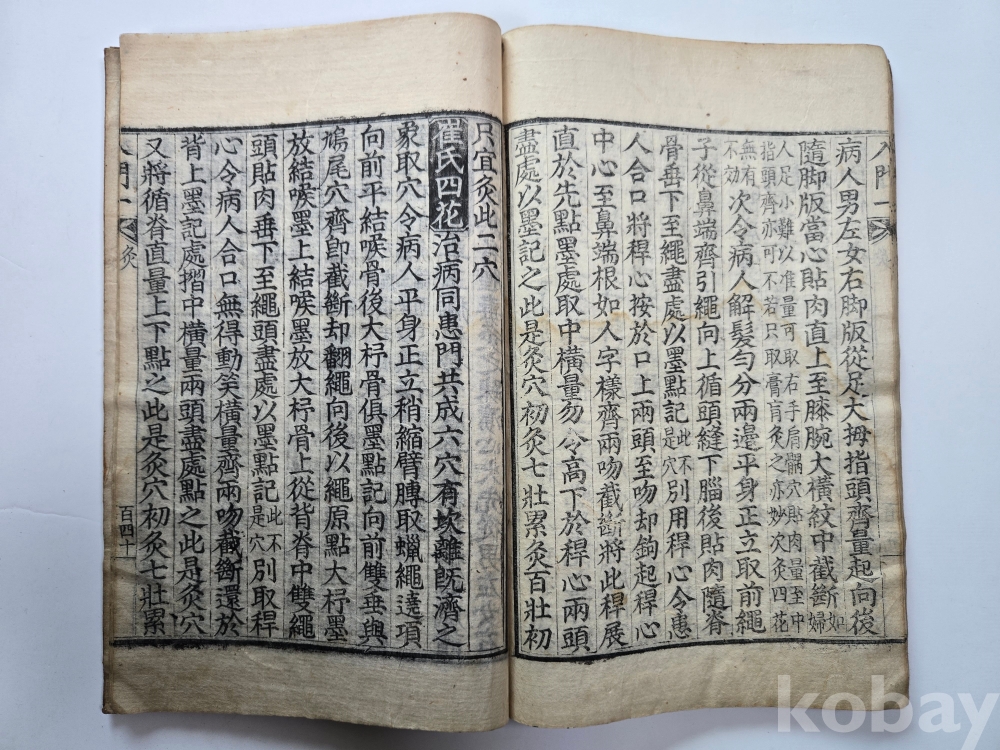 入門一
病人男左女右脚版從足大拇指頭齊量起向後
隨脚版當心貼肉直上至膝腕大橫紋中截斷如婦
人足小難以准量可取右手肩髃穴貼肉量至中
指頭齊亦可不若只取膏肓灸之亦妙次灸四花
無有不効次令病人解髮勻分兩邊平身正立取前繩
子從鼻端齊引繩向上循頭縫下腦後貼肉隨脊
骨垂下至繩盡處以墨點記此不是穴別用稈心令患
人合口將稈心按於口上兩頭至吻却鉤起稈心
中心至鼻端根如人字樣齊兩吻截斷將此稈展
直於先點墨處取中橫量勿令高下於稈心兩頭
盡處以墨記之此是灸穴初灸七壯累灸百壯初
只宜灸此二穴
崔氏四花治病同患門共成六穴有坎離旣濟之
象取穴令病人平身正立稍縮臂膊取蠟繩遶項
向前平結喉骨後大杼骨俱墨點記向前雙垂與
鳩尾穴齊卽截斷却翻繩向後以繩原點大杼墨
放結喉墨上結喉墨放大杼骨上從背脊中雙繩
頭貼肉垂下至繩頭盡處以墨點記此不是穴別取稈
心令病人合口無得動笑橫量齊兩吻截斷還於
背上墨記處摺中橫量兩頭盡處點之此是灸穴
又將循脊直量上下點之此是灸穴初灸七壯累
入門一 灸 百四十
kobay